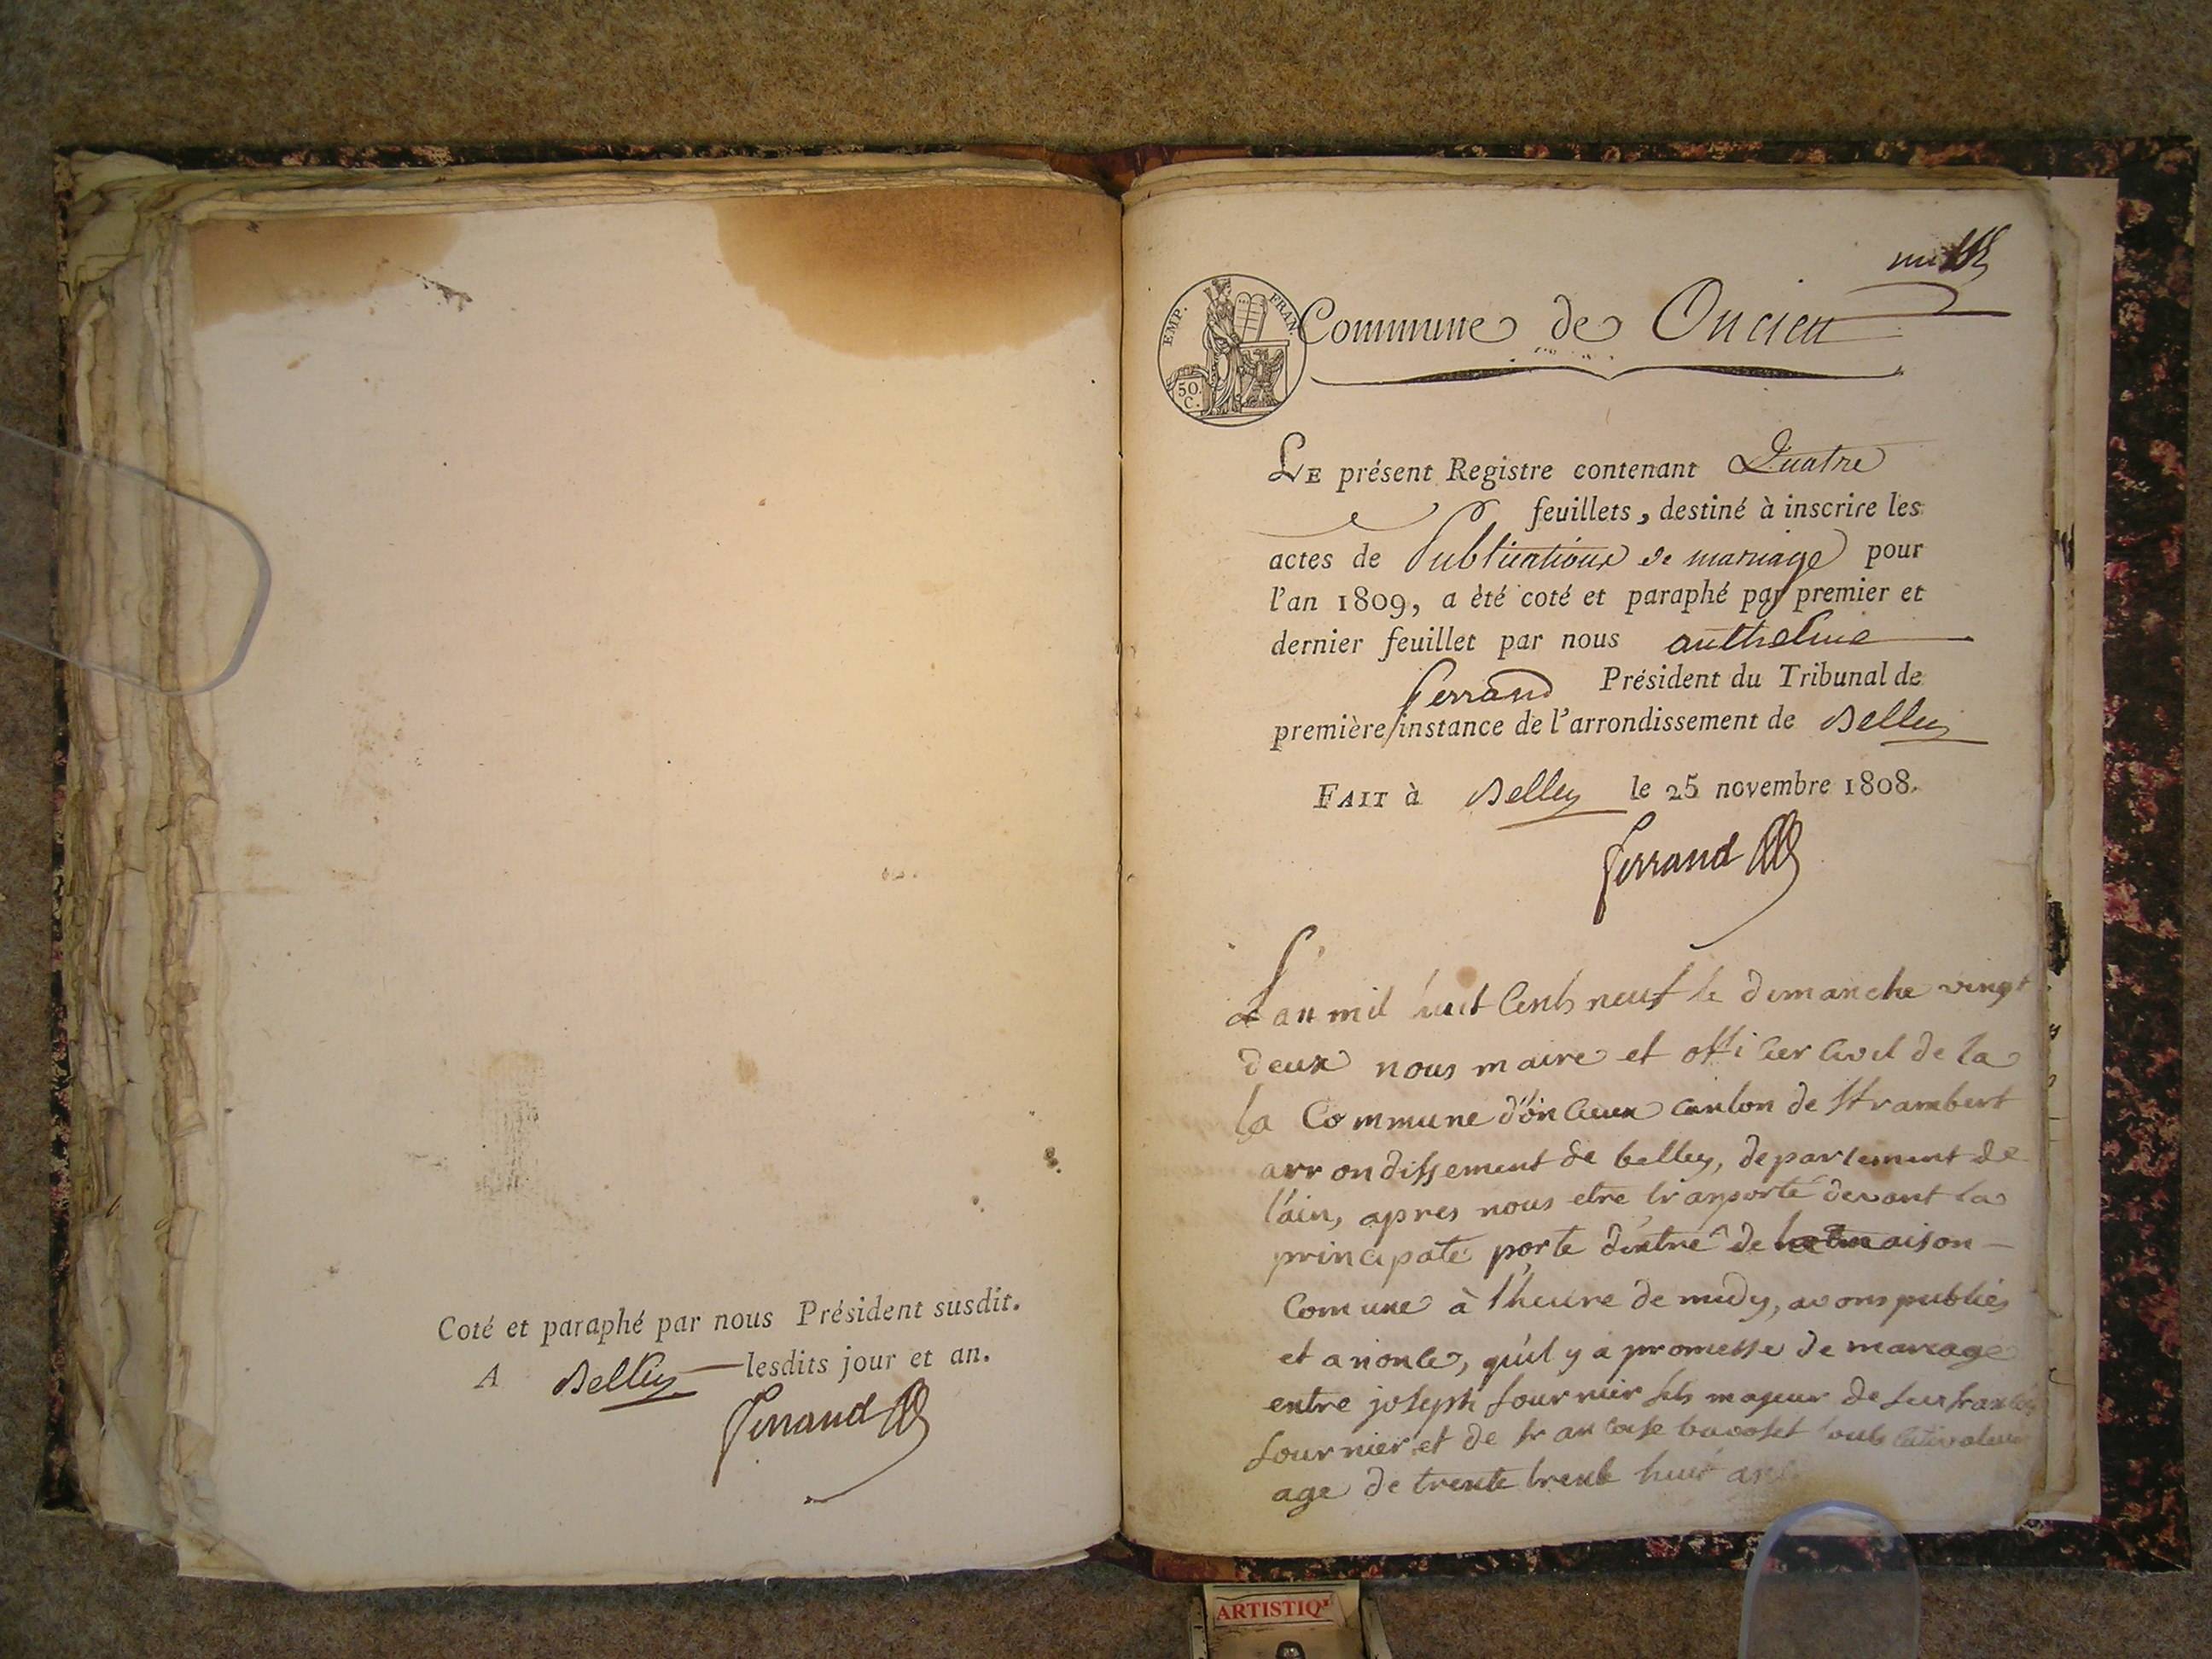 Coté et paraphé par nous Président susdit.
A Belley lesdits jour et an.
Ferrand
EMP. FRAN.
50. C.
Commune de Oncieu
LE présent Registre contenant Quatre
feuillets, destiné à inscrire les
actes de Publications de mariage pour
l'an 1809, a èté coté et paraphé par premier et
dernier feuillet par nous anthelme
ferrand Président du Tribunal de
première instance de l'arrondissement de Belley
FAIT à Belley le 25 novembre 1808.
ferrand
L'an mil huit cents neuf le dimanche vingt
deux nous maire et officier civil de la
la Commune d'oncieux canton de St rambert
arrondissement de belley, departement de
l'ain, apres nous etre tranporté devant la
principale porte d'entré de maison
comune à l'heure de midy, avons publiés
et anoncé, qu'il y a promesse de mariage
entre joseph fournier fils majeur de feu francois
fournier et de francoise cultivateur
age de trente trente huit ans
ARTISTIQ